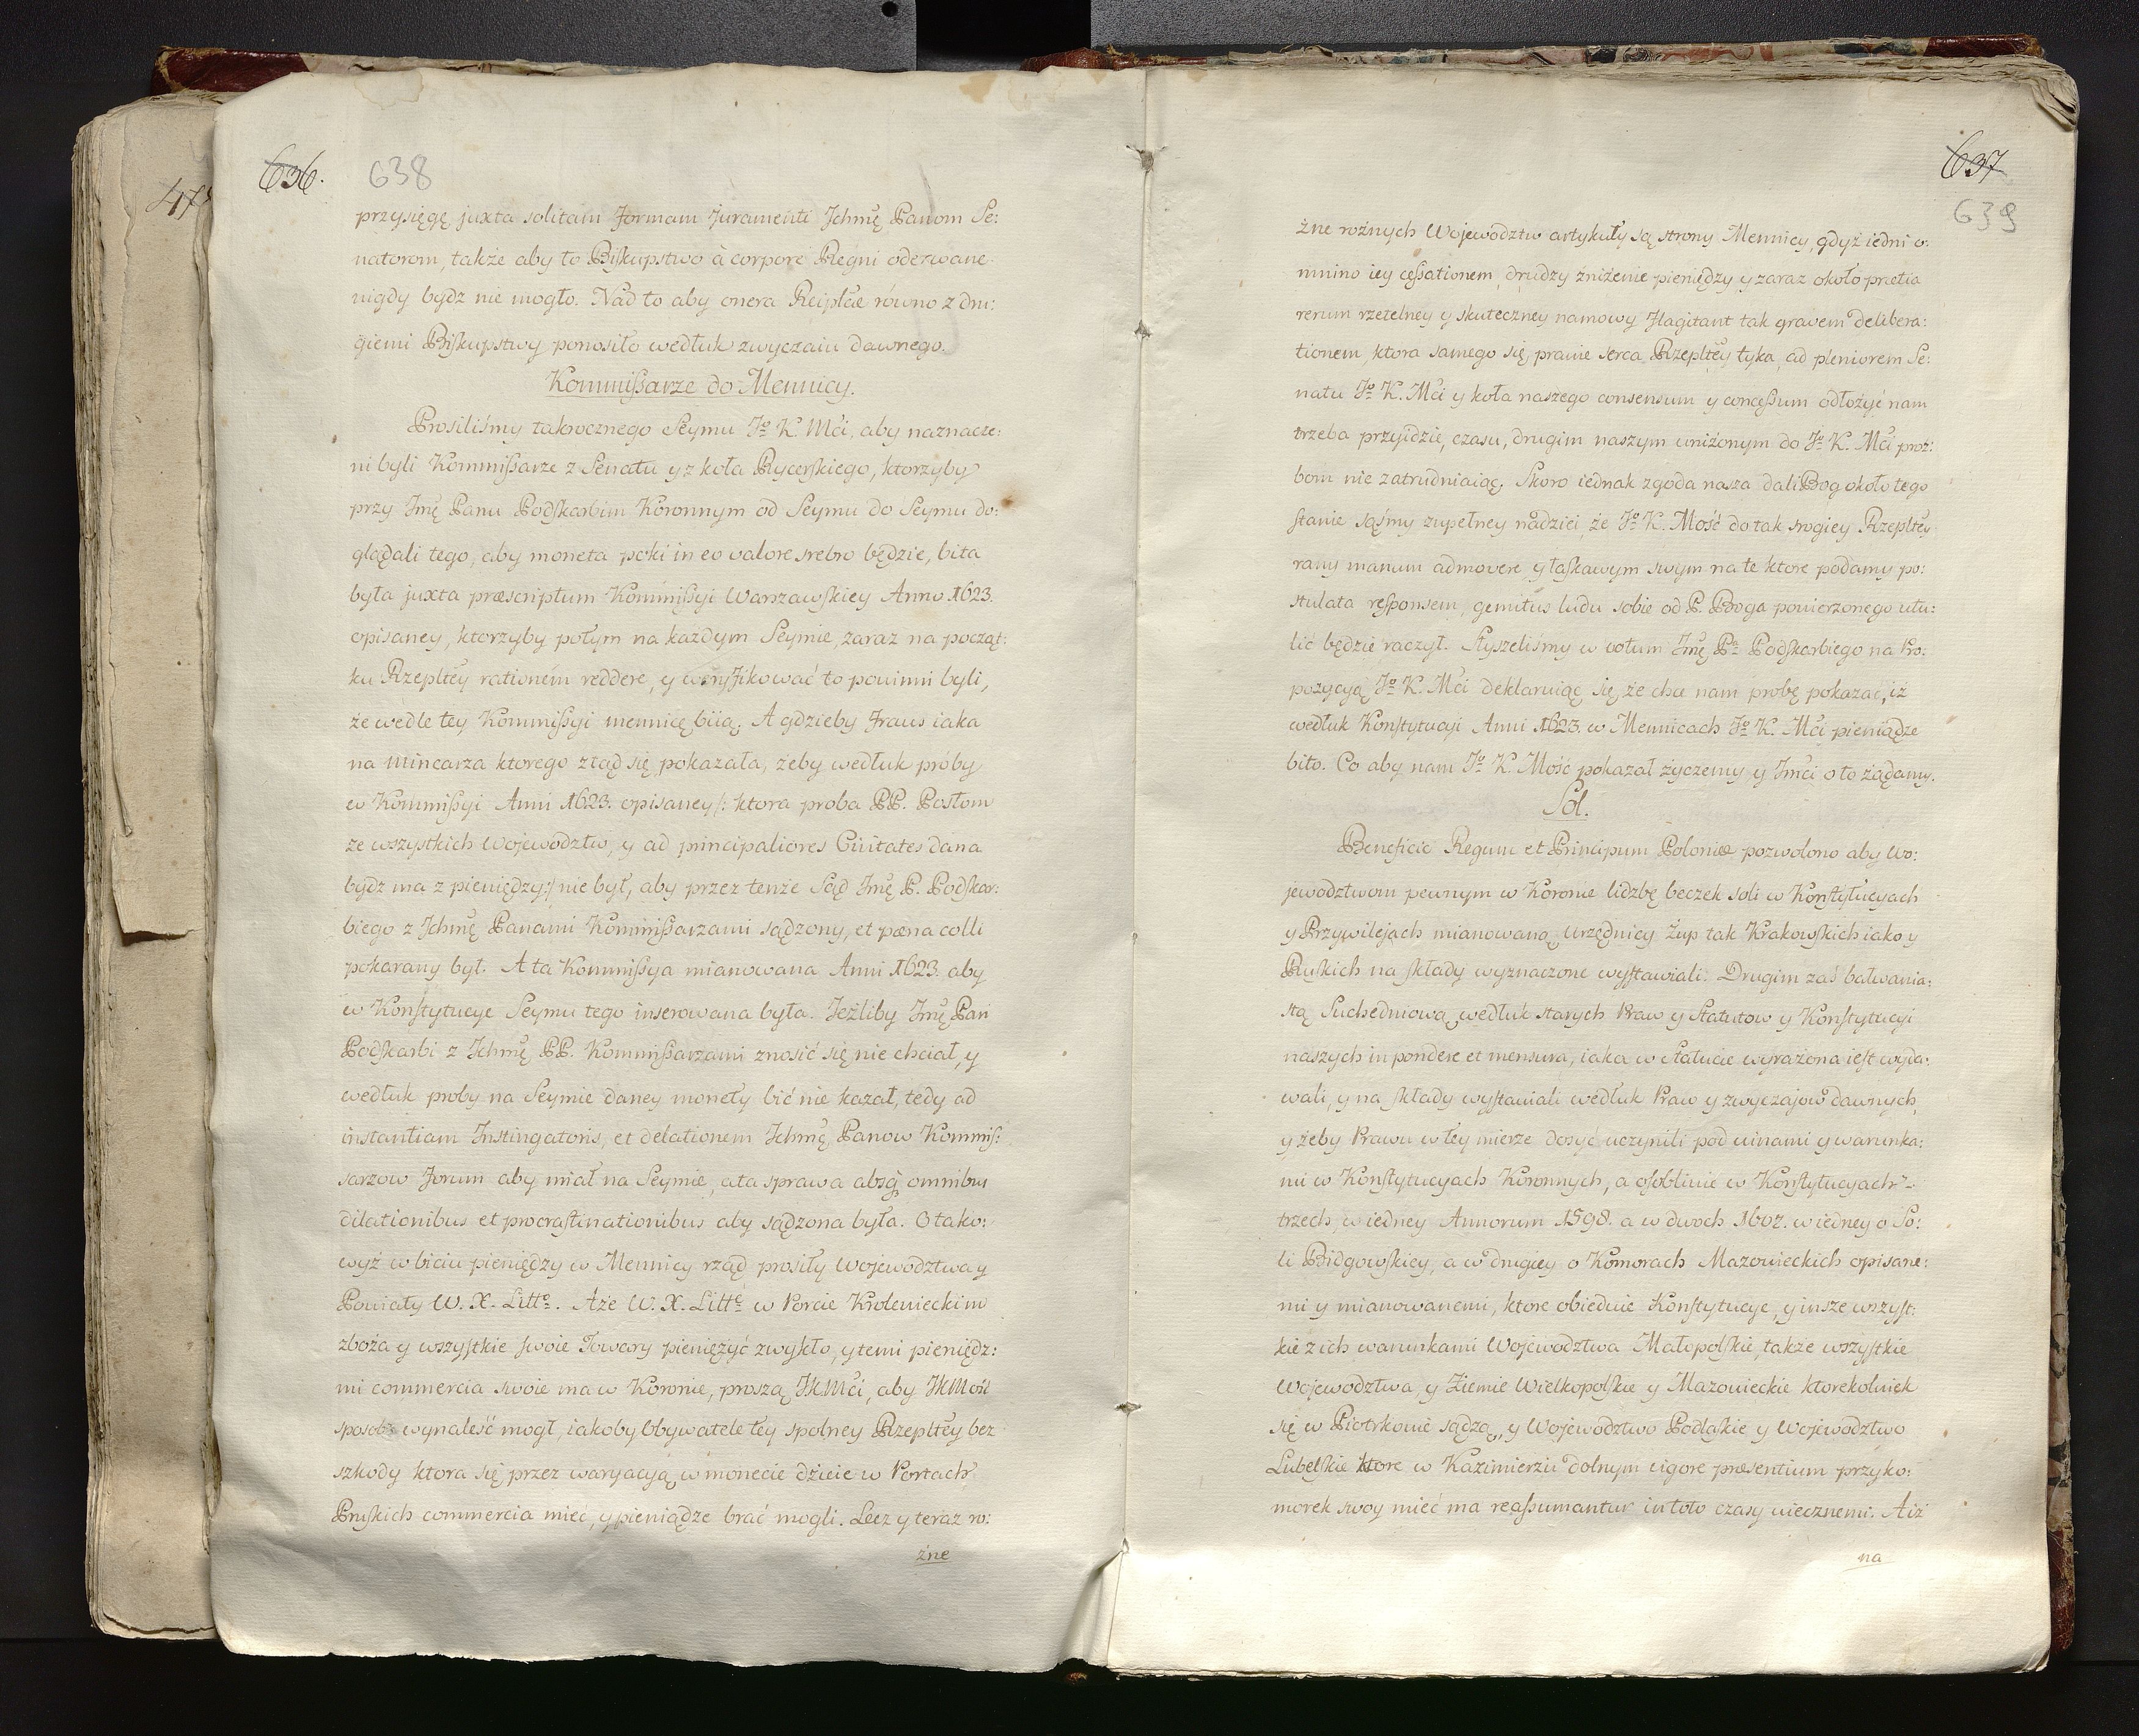 636. 638
przysięgę juxta solitam formam juramenti Ichmę Panom Se:
natorom, także aby to Biskupstwo à corpore Regni oderwane
nigdy bydz nie mogło. Nad to aby onera Reiplae równo z dru:
giemi Biskupstwy ponosiło wedłuk zwyczaiu dawnego.
Kommissarze do Mennicy.
Prosiliśmy takrocznego Seymu Jº K. Mći, aby naznacze:
ni byli Kommissarze z Senatu y z koła Rycerskiego, ktorzyby
przy Jmę Panu Podskarbim Koronnym od Seymu do Seymu do:
glądali tego, aby moneta poki in eo valore srebro będzie, bita
była juxta præscriptum Kommissyi Warszawskiey Anno 1623.
opisaney, ktorzyby potym na kazdym Seymie, zaraz na począt:
ku Rzepltey rationem reddere, y weryfikować to powinni byli,
że wedle tey Kommissyi mennicę biią. A gdzieby fraus iaka
na mincarza ktorego ztąd się pokazała, żeby wedłuk próby
w Kommissyi Anni 1623. opisaney/: ktora proba PP. Posłom
ze wszystkich Wojewodztw, y ad principaliores Civitates dana
bydz ma z pieniędzy:/ nie był, aby przez tenże Sąd Jmę P. Podskar:
biego z Ichmę Panami Kommissarzami sądzony, et pæna colli
pokarany był. A ta Kommissya mianowana Anni 1623. aby
w Konstytucye Seymu tego inserowana była. Jeżliby Jmę Pan
Podskarbi z Ichmę PP. Kommissarzami znosić się nie chciał, y
wedłuk proby na Seymie daney monety bić nie kazał, tedy ad
instantiam Instingatoris, et delationem Ichmę Panow Kommis:
sarzow forum aby miał na Seymie, a ta sprawa absq omnibus
dilationibus et procrastinationibus aby sądzona była. O tako:
wyż w biciu pieniędzy w Mennicy rząd prosiły Wojewodztwa y
Powiaty W. X. Littº. Aże W. X. Littº w Porcie Krolewieckim
zboża y wszystkie swoie Towary pieniężyć zwykło, y temi pieniędz:
mi commercia swoie ma w Koronie, proszą JKMći, aby JKMość
sposob wynaleść mogł, iakoby Obywatele tey spolney Rzepltey bez
szkody ktora się przez waryacyą w monecie dzieie w Portach
Pruskich commercia mieć, y pieniądze brać mogli. Lecz y teraz ro:
żne
637
639
żne rożnych Wojewodztw artykuły są strony Mennicy, gdyż iedni o:
mnino iey cessationem, drudzy zniżenie pieniędzy y zaraz około prætia
rerum rzetelney y skuteczney namowy flagitant tak gravem delibera:
tionem, ktora samego się prawie serca Rzepltey tyka, ad pleniorem Se:
natu Jº K. Mći y koła naszego consensum y concessum odłożyć nam
trzeba przyidzie, czasu, drugim naszym uniżonym do Jº K. Mći proz:
bom nie zatrudniaiąc. Skoro iednak zgoda nasza dali Bog około tego
stanie sąśmy zupełney nadziei, że Jº K. Mość do tak srogiey Rzepltey
rany manum admovere y łaskawym swym na te ktore podamy po:
stulata responsem, gemitus ludu sobie od P. Boga powierzonego utu:
lić będzie raczył. Słyszeliśmy w votum Jmę Pª Podskarbiego na Pro:
pozycyą Jº K. Mći deklaruiąc się, że chce nam probę pokazać, iż
wedłuk Konstytucyi Anni 1623. w Mennicach Jº K. Mći pieniądze
bito. Co aby nam Jº K. Mość pokazał życzemy y Jmći o to żądamy.
Sol.
Beneficie Regum et Principum Poloniæ pozwolono aby Wo:
jewodztwom pewnym w Koronie lidzbę beczek soli w Konstytucyach
y Przywilejach mianowaną Urzędnicy Żup tak Krakowskich iako y
Ruskich na składy wyznaczone wystawiali. Drugim zaś bałwania:
stą Suchedniową wedłuk starych Praw y Statutow y Konstytucyi
naszych in pondere et mensura, iaka w Statucie wyrażona iest wyda:
wali, y na składy wystawiali wedłuk Praw y zwyczajow dawnych,
y żeby Prawu w tey mierze dosyć uczynili pod winami y warunka:
mi w Konstytucyach Koronnych, a osobliwie w Konstytucyach
trzech, w iedney Annorum 1598. a w dwoch 1607. w iedney o So:
li Bidgowskiey, a w drugiey o Komorach Mazowieckich opisane:
mi y mianowanemi, ktore obiedwie Konstytucye, y insze wszyst:
kie z ich warunkami Wojewodztwa Małopolskie, także wszystkie
Wojewodztwa, y Ziemie Wielkopolskie y Mazowieckie ktorekolwiek
się w Piotrkowie sądzą, y Wojewodztwo Podlaskie y Wojewodztwo
Lubelskie ktore w Kazimierzu dolnym vigore præsentium przyko:
morek swoy mieć ma reassumantur in toto czasy wiecznemi. A iż
na